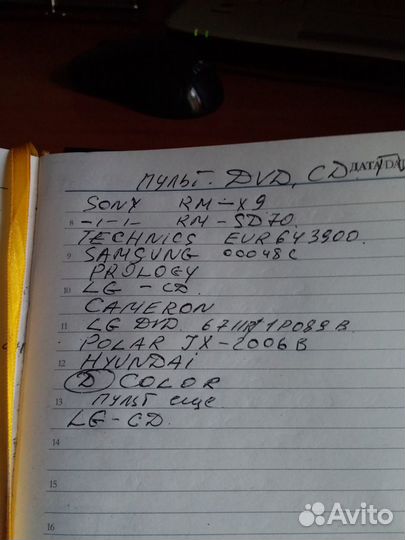 ДАТА/DA
ПУЛЬТ. DVD, CD.
SONY RM-X9
8 -I-I- RM-SD70.
TECHNICS EUR643900.
9 SAMSUNG 00048C
PROLOGY
10 LG -CD.
CAMERON
11 LG DVD. 6711R1P089B
POLAR JX-2006B
12 HYUNDAI
D COLOR
13 ПУЛЬТ ЕЩЕ
LG-CD.
14
15
16
Avito